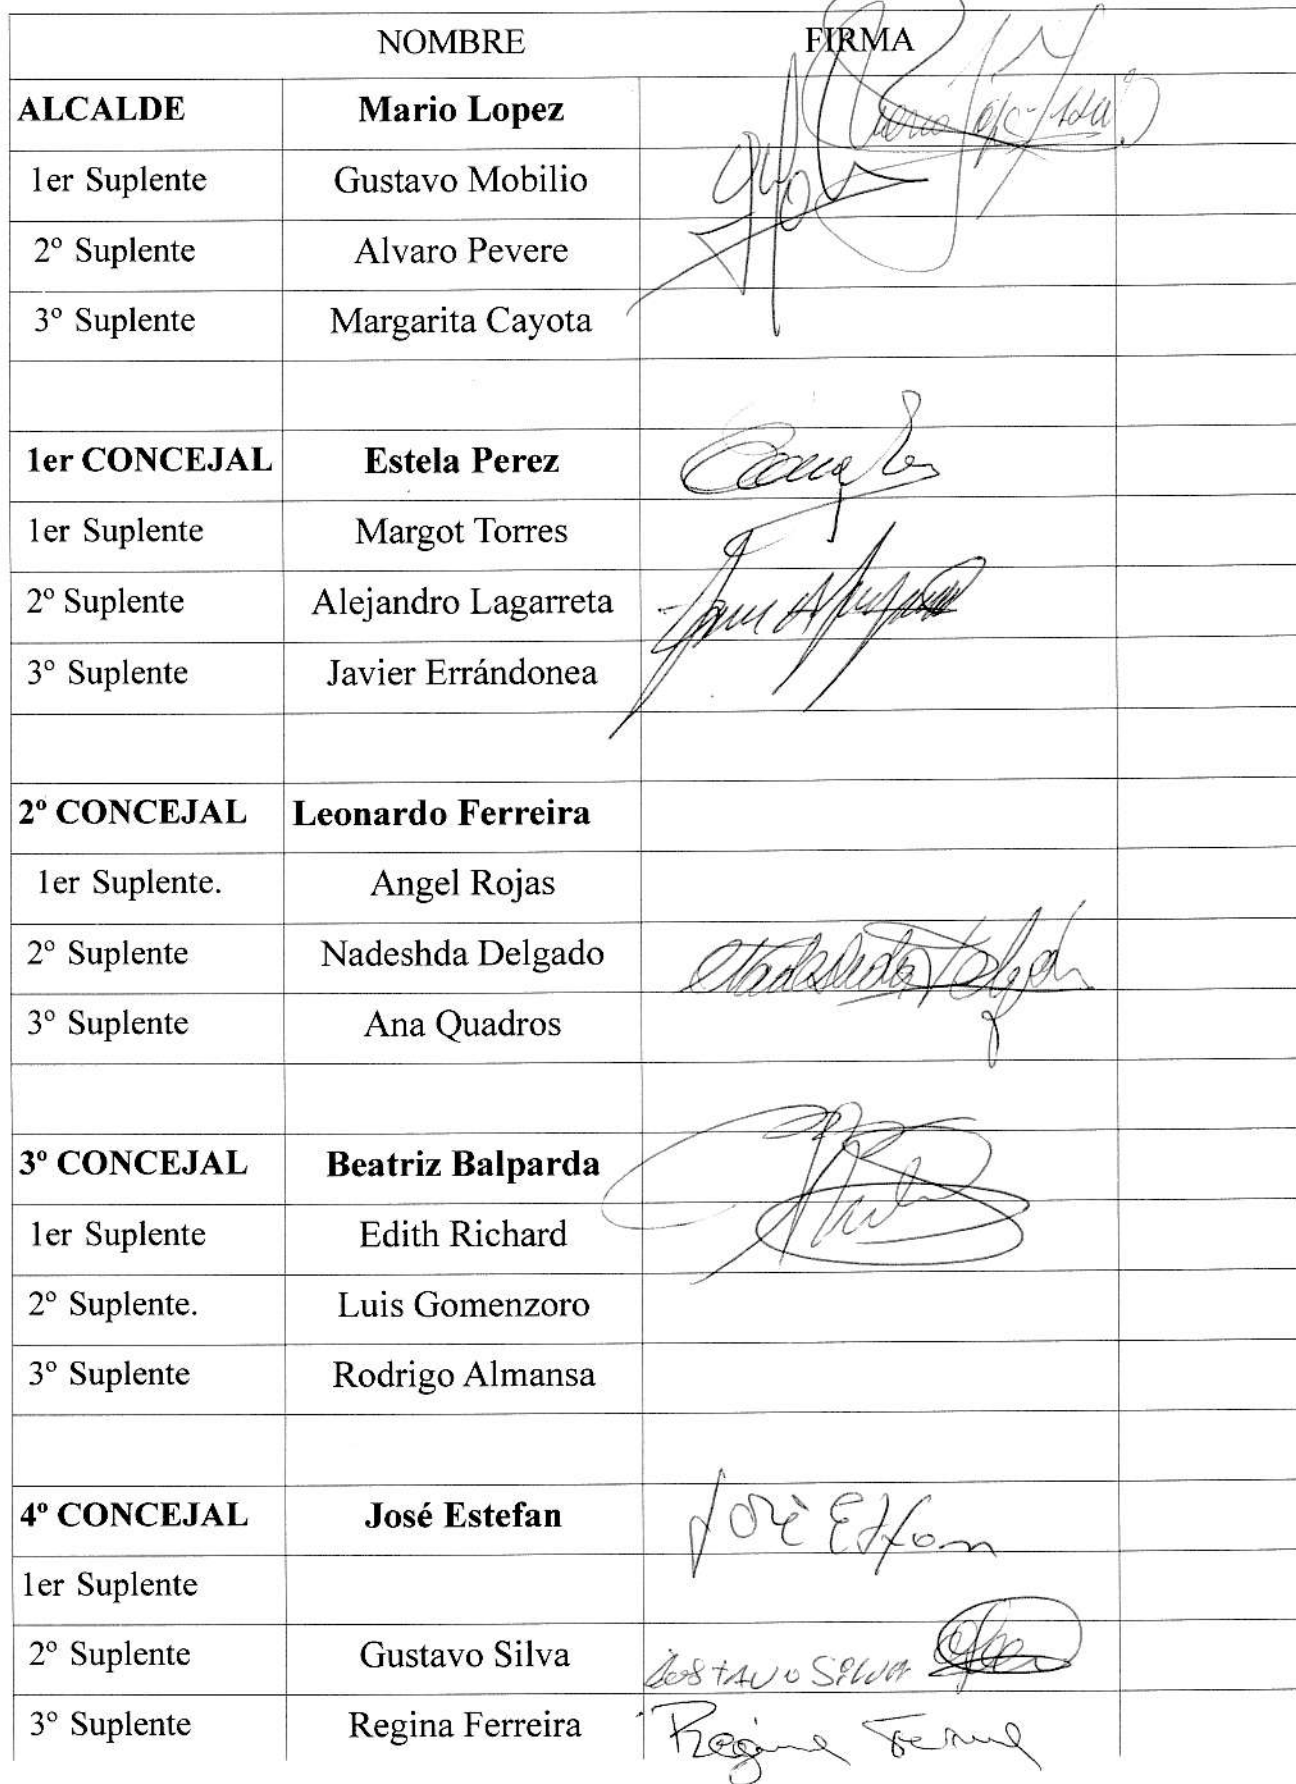 NOMBRE FIRMA
ALCALDE Mario Lopez
1er Suplente Gustavo Mobilio
2º Suplente Alvaro Pevere
3º Suplente Margarita Cayota
1er CONCEJAL Estela Perez
1er Suplente Margot Torres
2º Suplente Alejandro Lagarreta
3º Suplente Javier Errándonea
2º CONCEJAL Leonardo Ferreira
1er Suplente. Angel Rojas
2º Suplente Nadeshda Delgado Nadeshda Delgado
3º Suplente Ana Quadros
3º CONCEJAL Beatriz Balparda
1er Suplente Edith Richard
2º Suplente. Luis Gomenzoro
3º Suplente Rodrigo Almansa
4º CONCEJAL José Estefan José
1er Suplente
2º Suplente Gustavo Silva GUSTAVO SILVA
3º Suplente Regina Ferreira Regina